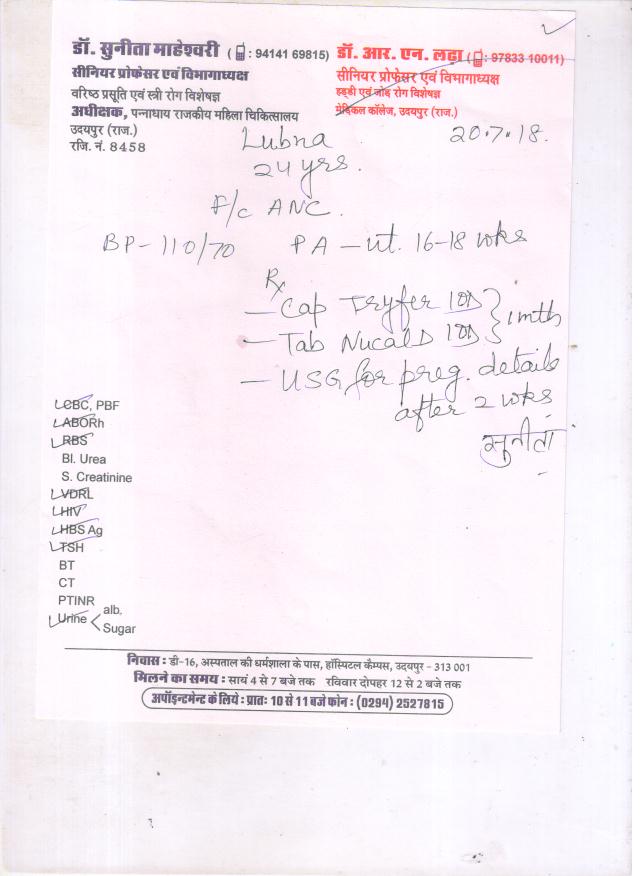 डॉ. सुनीता माहेश्वरी ( : 94141 69815)
सीनियर प्रोफेसर एवं विभागाध्यक्ष
वरिष्ठ प्रसूति एवं स्त्री रोग विशेषज्ञ
अधीक्षक, पन्नाधाय राजकीय महिला चिकित्सालय
उदयपुर (राज.)
रजि. नं. 8458
डॉ. आर. एन. लढ़ा ( : 97833 10011)
सीनियर प्रोफेसर एवं विभागाध्यक्ष
हड्डी एवं जोड़ रोग विशेषज्ञ
मेडिकल कॉलेज, उदयपुर (राज.)
20.7.18.
Lubna
24 yrs.
F/c ANC.
BP-110/70 PA - ut. 16-18 wks
Rx
- Cap Tryfer 1OD } 1 mth
- Tab Nucal D 1OD
- USG for preg. details
after 2 wks
सुनीता
CBC, PBF
ABORh
RBS
Bl. Urea
S. Creatinine
VDRL
HIV
HBS Ag
TSH
BT
CT
PTINR
Urine < alb.
Sugar
निवास : डी-16, अस्पताल की धर्मशाला के पास, हॉस्पिटल कैम्पस, उदयपुर - 313 001
मिलने का समय : सायं 4 से 7 बजे तक रविवार दोपहर 12 से 2 बजे तक
अपॉइन्टमेन्ट के लिये : प्रातः 10 से 11 बजे फोन : (0294) 2527815